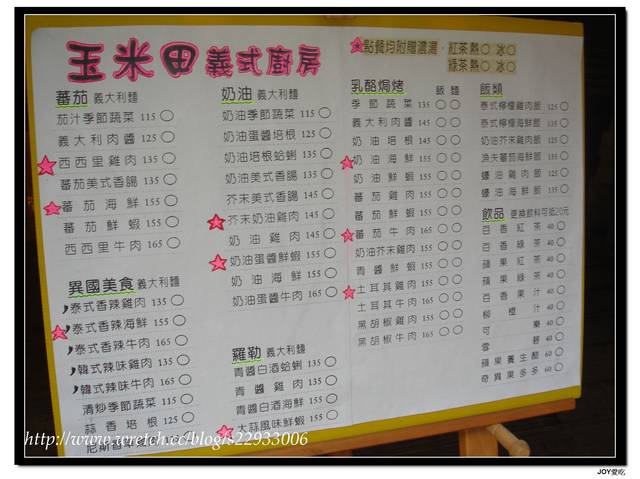 玉米田義式廚房
★點餐均附贈濃湯、紅茶熱○ 冰○
綠茶熱○ 冰○
蕃茄 義大利麵
茄汁季節蔬菜 115 ○
義大利肉醬 125 ○
西西里雞肉 135 ○
蕃茄美式香腸 135 ○
蕃茄海鮮 155 ○
蕃茄鮮蝦 155 ○
西西里牛肉 165 ○
異國美食 義大利麵
泰式香辣雞肉 135 ○
泰式香辣海鮮 155 ○
泰式香辣牛肉 165 ○
韓式辣味雞肉 135 ○
韓式辣味牛肉 165 ○
清炒季節蔬菜 115 ○
蒜香培根 125 ○
奶油 義大利麵
奶油季節蔬菜 115 ○
奶油蛋醬培根 125 ○
奶油培根蛤蜊 135 ○
奶油美式香腸 135 ○
芥末美式香腸 145 ○
芥末奶油雞肉 145 ○
奶油雞肉 145 ○
奶油蛋醬鮮蝦 155 ○
奶油海鮮 155 ○
奶油蛋醬牛肉 165 ○
羅勒 義大利麵
青醬白酒蛤蜊 135 ○
青醬雞肉 135 ○
青醬白酒海鮮 155 ○
大蒜風味鮮蝦 155 ○
乳酪焗烤 飯 麵
季節蔬菜 135 ○ ○
義大利肉醬 145 ○ ○
奶油培根 145 ○ ○
奶油海鮮 155 ○ ○
奶油鮮蝦 155 ○ ○
蕃茄雞肉 155 ○ ○
蕃茄鮮蝦 155 ○ ○
蕃茄牛肉 165 ○ ○
奶油芥末雞肉 155 ○ ○
青醬鮮蝦 155 ○ ○
土耳其雞肉 155 ○ ○
土耳其牛肉 165 ○ ○
黑胡椒雞肉 155 ○ ○
黑胡椒牛肉 165 ○ ○
飯類
泰式檸檬雞肉飯 125 ○
泰式檸檬海鮮飯 135 ○
奶油芥末雞肉飯 125 ○
漁夫蕃茄海鮮飯 135 ○
蠔油雞肉飯 125 ○
蠔油海鮮飯 135 ○
飲品 更換飲料可抵20元
百香紅茶 40 ○
百香綠茶 40 ○
蘋果紅茶 40 ○
蘋果綠茶 40 ○
百香果汁 40 ○
柳橙汁 40 ○
可樂 40 ○
雪碧 40 ○
蘋果養生醋 60 ○
奇異果多多 60 ○
http://www.wretch.cc/blog/s22933006
JOY愛吃